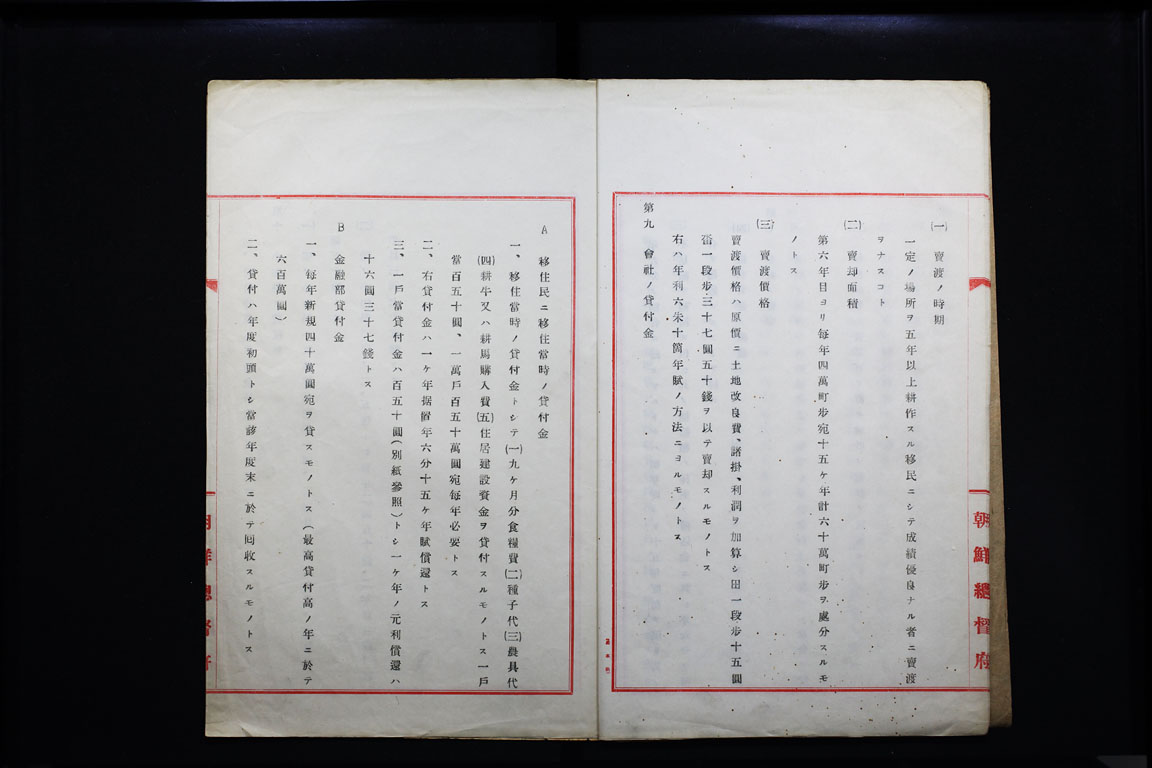 ㈠　賣渡ノ時期
一定ノ場所ヲ五年以上耕作スル移民ニシテ成績優良ナル者ニ賣渡
ヲナスコト
㈡　賣却面積
第六年目ヨリ每年四萬町步宛十五ケ年計六十萬町步ヲ處分スルモ
ノトス
㈢　賣渡價格
賣渡價格ハ原價ニ土地改良費、諸掛、利潤ヲ加算シ田一段步十五圓
畓一段步三十七圓五十錢ヲ以テ賣却スルモノトス
右ハ年利六朱十箇年賦ノ方法ニヨルモノトス
第九　會社ノ貸付金
朝鮮總督府
A　移住民ニ移住當時ノ貸付金
一、移住當時ノ貸付金トシテ㈠九ケ月分食糧費㈡種子代㈢農具代
㈣耕牛又ハ耕馬購入費㈤住居建設資金ヲ貸付スルモノトス一戶
當百五十圓、一萬戶百五十萬圓宛每年必要トス
二、右貸付金ハ一ケ年据置年六分十五ケ年賦償還トス
三、一戶當貸付金ハ百五十圓（別紙參照）トシ一ケ年ノ元利償還ハ
十六圓三十七錢トス
B　金融部貸付金
一、每年新規四十萬圓宛ヲ貸スモノトス（最高貸付高ノ年ニ於テ
六百萬圓）
二、貸付ハ年度初頭トシ當該年度末ニ於テ回收スルモノトス
朝鮮總督府